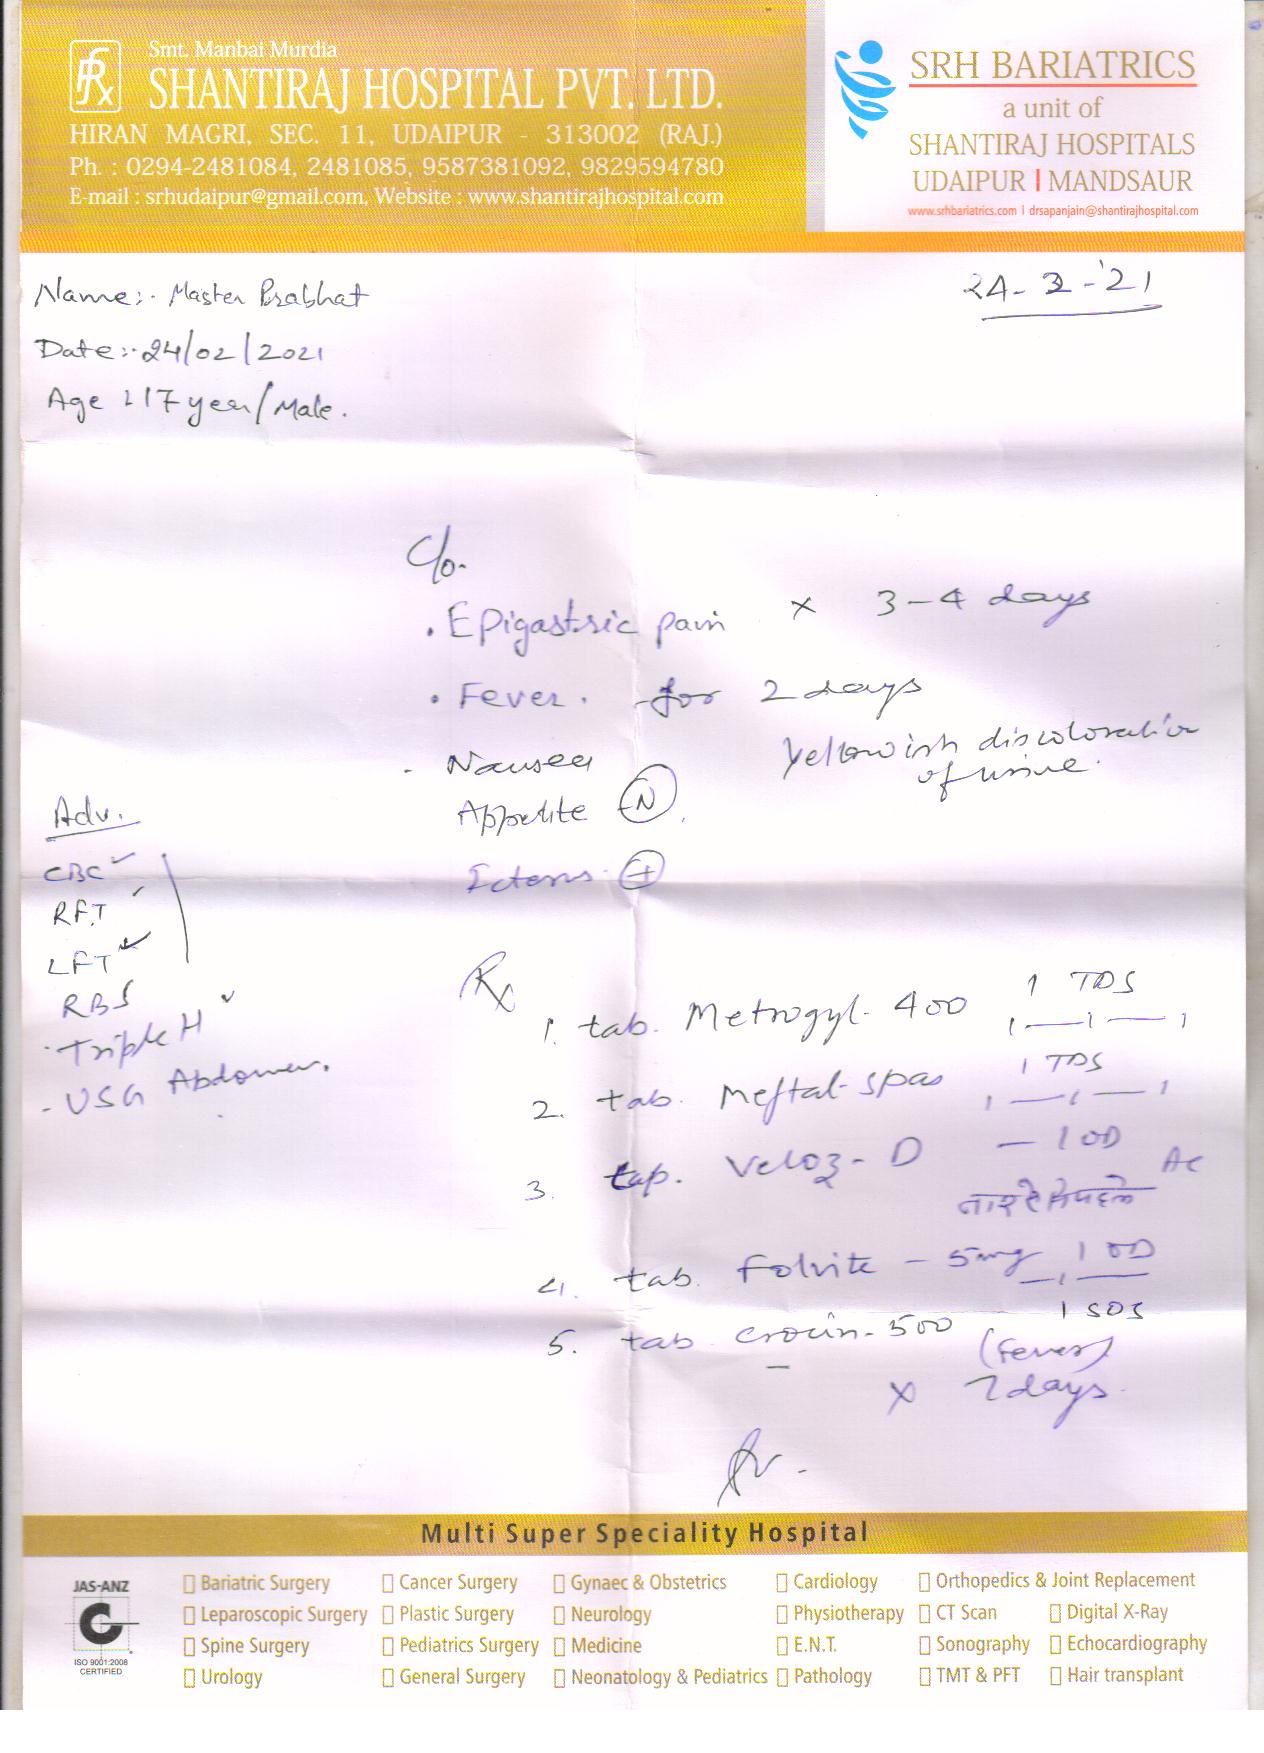 Smt. Manbai Murdia
SHANTIRAJ HOSPITAL PVT. LTD.
HIRAN MAGRI, SEC. 11, UDAIPUR - 313002 (RAJ.)
Ph. : 0294-2481084, 2481085, 9587381092, 9829594780
E-mail : srhudaipur@gmail.com, Website : www.shantirajhospital.com
SRH BARIATRICS
a unit of
SHANTIRAJ HOSPITALS
UDAIPUR | MANDSAUR
www.srhbariatrics.com | drsapanjain@shantirajhospital.com
Name:- Master Prabhat
24-2-'21
Date:- 24/02/2021
Age : 17 year/Male.
C/o.
. Epigastric pain x 3-4 days
. Fever. for 2 days
- Nausea Yellowish discoloration
of urine.
Appetite N
Icterus +
Adv.
CBC
RFT
LFT
RBS
- Triple H
- USG Abdomen.
Rx
1. tab. Metrogyl- 400 1 TDS
1 — 1 — 1
2. tab. Meftal-spas 1 TDS
1 — 1 — 1
3. cap. Veloz- D — 1 OD AC
नाश्ते से पहले
4. tab. Folvite - 5mg 1 OD
— 1 —
5. tab crocin- 500 1 SOS
(Fever)
x 7 days.
Multi Super Speciality Hospital
JAS-ANZ
ISO 9001:2008
CERTIFIED
Bariatric Surgery Cancer Surgery Gynaec & Obstetrics Cardiology Orthopedics & Joint Replacement
Leparoscopic Surgery Plastic Surgery Neurology Physiotherapy CT Scan Digital X-Ray
Spine Surgery Pediatrics Surgery Medicine E.N.T. Sonography Echocardiography
Urology General Surgery Neonatology & Pediatrics Pathology TMT & PFT Hair transplant